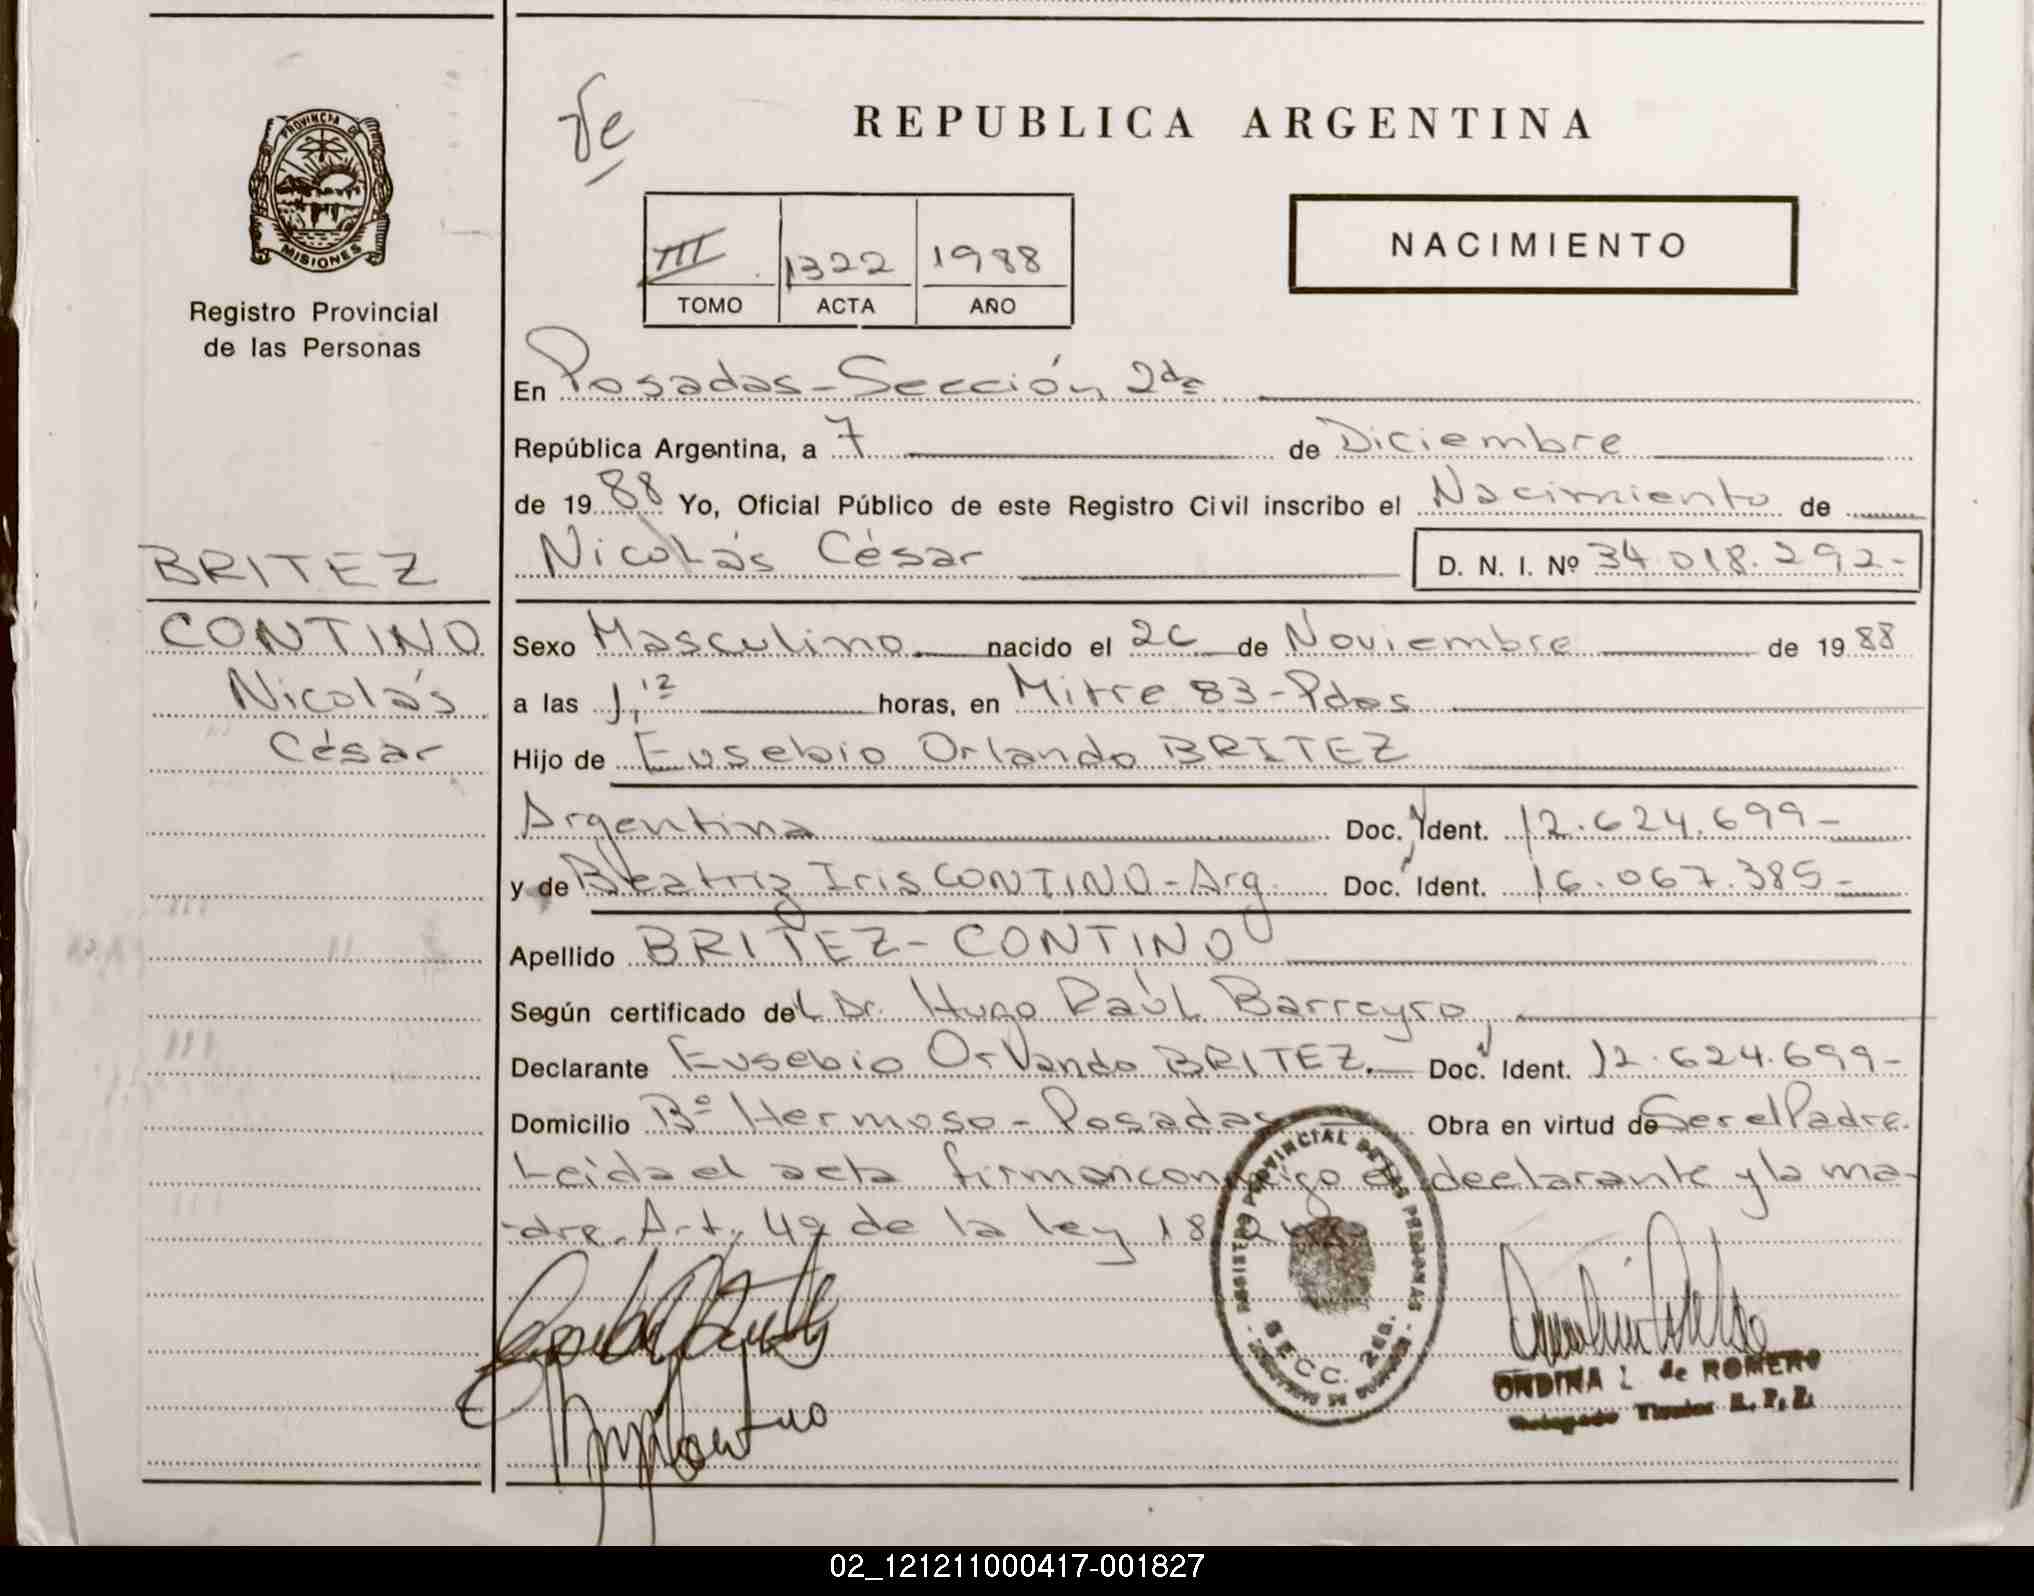 PROVINCIA DE
MISIONES
Registro Provincial
de las Personas
BRITEZ
CONTINO
Nicolás
César
REPUBLICA ARGENTINA
III 1322 1988
TOMO ACTA AÑO
NACIMIENTO
En Posadas-Sección 2da
República Argentina, a 7 de Diciembre
de 1988 Yo, Oficial Público de este Registro Civil inscribo el Nacimiento de
Nicolás César D. N. I. Nº 34.018.292-
Sexo Masculino nacido el 26 de Noviembre de 1988
a las 1,12 horas, en Mitre 83-Pdas
Hijo de Eusebio Orlando BRITEZ
Argentina Doc. Ident. 12.624.699-
y de Beatriz Iris CONTINO-Arg. Doc. Ident. 16.067.385-
Apellido BRITEZ-CONTINO
Según certificado del Dr. Hugo Raúl Barreyro
Declarante Eusebio Orlando BRITEZ. Doc. Ident. 12.624.699-
Domicilio Bº Hermoso-Posadas Obra en virtud de Ser el Padre.
Leída el acta firman conmigo el declarante y la ma-
-dre. Art. 49 de la ley 18
REGISTRO PROVINCIAL DE LAS PERSONAS
SECC. 2da.
ONDINA L de ROMERO
Titular
02_121211000417-001827